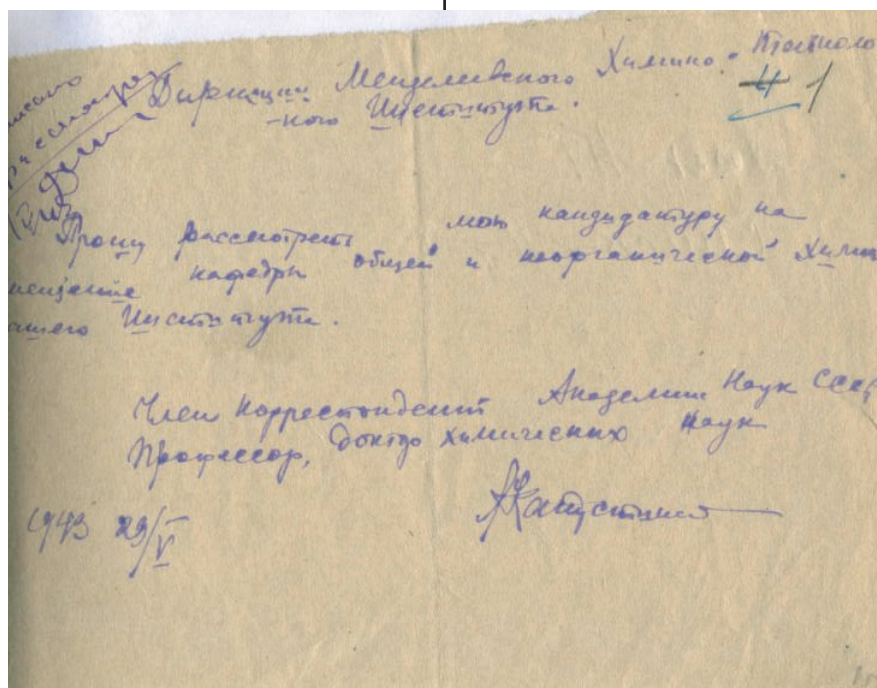 Дирекции Менделеевского Химико-Техноло
-ного Института.
4 1
Прошу рассмотреть мою кандидатуру на
мещение кафедры общей и неорганической Хими
ашего Института.
Член Корреспондент Академии Наук СССР,
Профессор, доктор химических наук
АКапустинский
1943 29/V